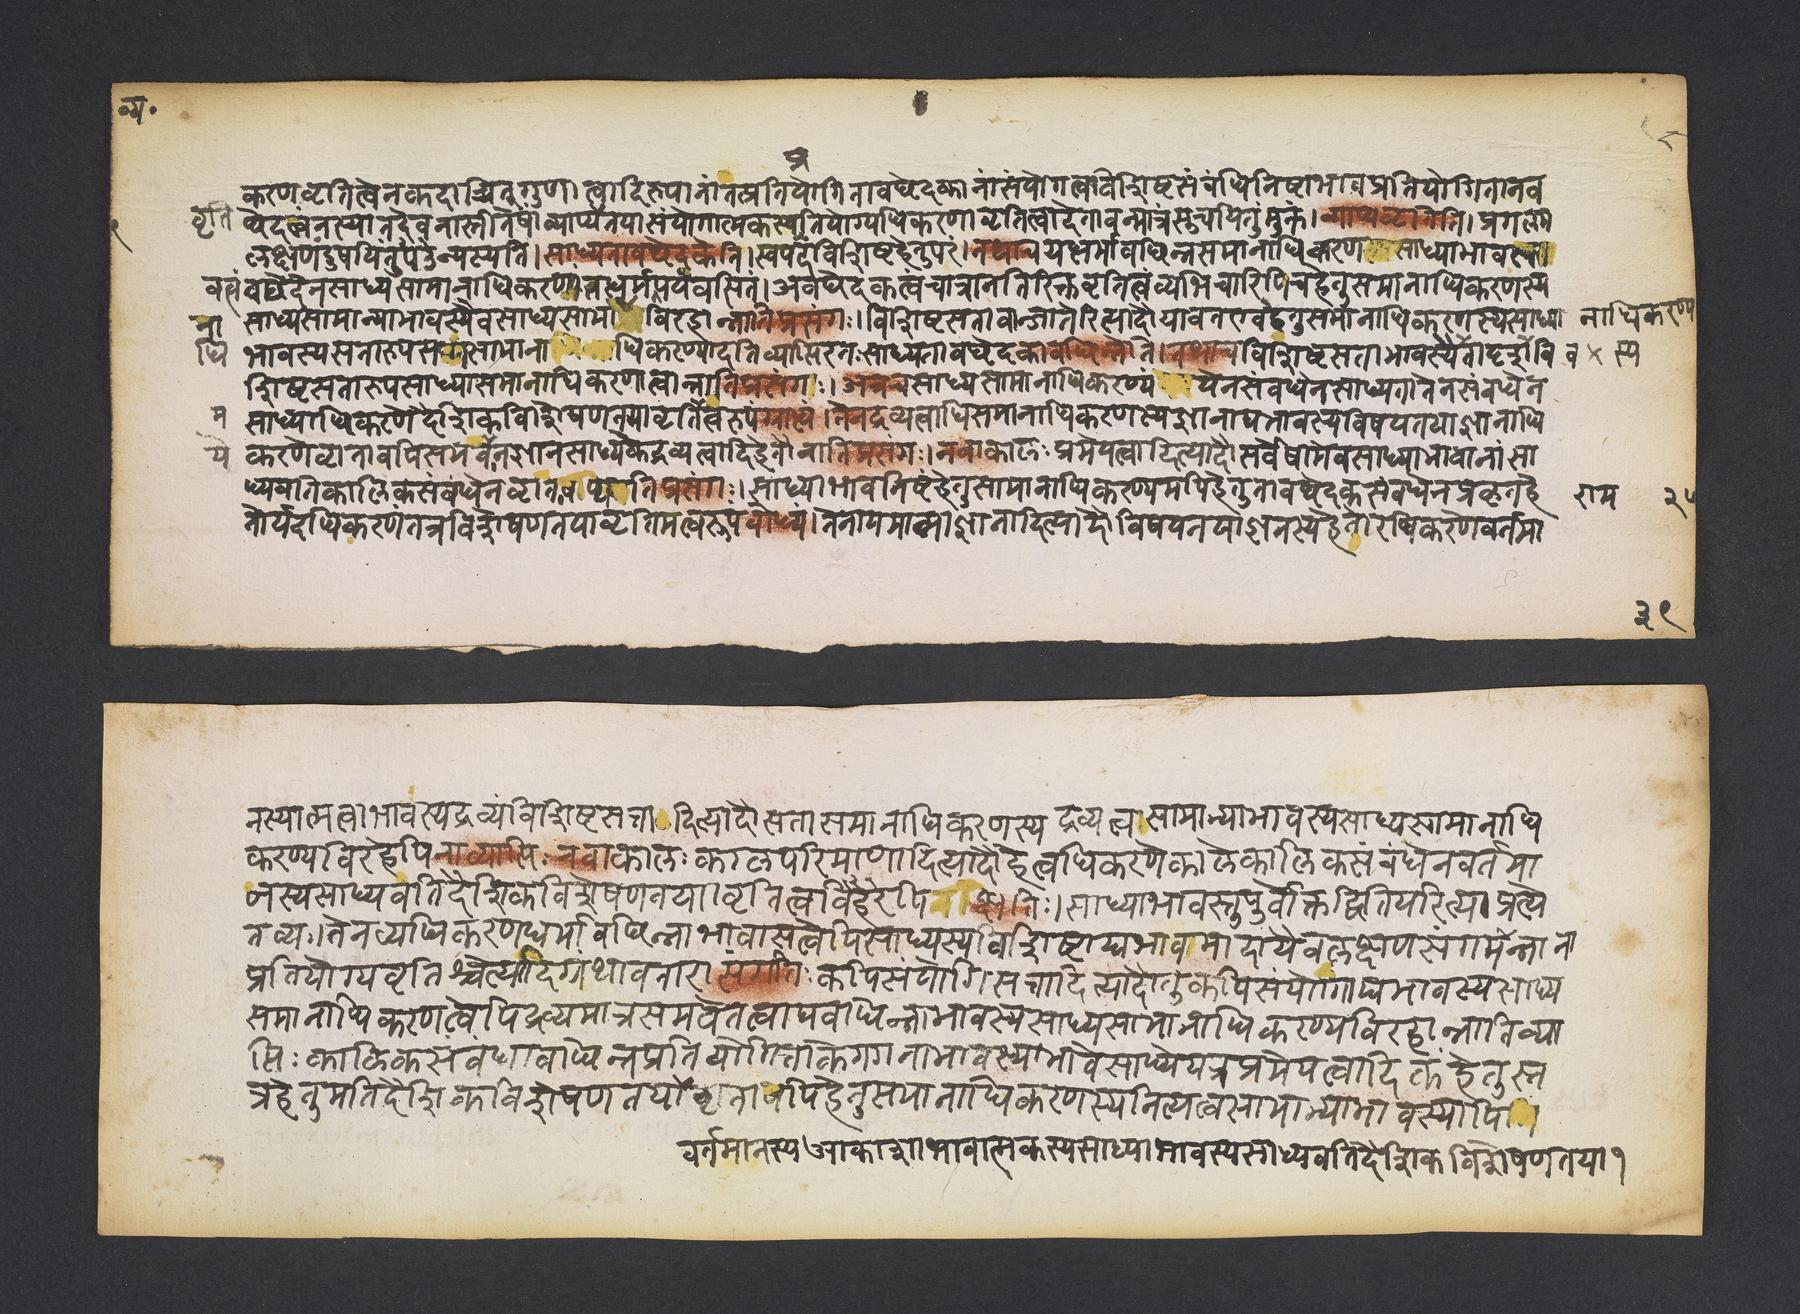 व्य॰
प्र
करणवृतित्वेनकदाचित्गुणात्वादिरूपानांतत्प्रतियोगितावछेदकानांसंयोगत्वावछिशिष्टसंबंधिनिष्ठाभावप्रतियोगितानव
वृति छेदत्वंनस्यानदैवनास्तीतिषांव्याप्यतयासंयोगात्मकस्यप्रतियोग्यधिकरणावृतित्वादेतावन्मात्रंसुचयितुंमुक्तं।व्याप्यवृतीति।प्रगल्भ
लक्षणंदुषयितुंपउन्यस्यति।साध्यतावछेदकेति।स्वपदंविशिष्टहेतुपरं।तथाचयधर्मावछिन्नसमानाधिकरणसाध्याभावत्वा
वत्वं वछेदेनसाध्यसामानाधिकरण्यंतधर्मपर्यवसितं।अवछेदकत्वंचात्रानतिरिक्तवृतित्वंव्यभिचारिणिचहेतुसमानाधिकरणस्य
ना साध्यसामान्याभावस्यैवसाध्यसामाविरहान्नातिप्रसंगः।विशिष्टसतावान्जातेरित्यादौयावतएवहेतुसमानाधिकरणस्यसाध्या नाधिकरण्य
धि भावस्यसतारूपसामानाधिकरण्यादतिव्याप्तिरतःसाध्यतावछेदकावछिन्नेति।तथाचविशिष्टसताभावस्यैतादृशोवि व × स्य
शिष्टसतारूपसाध्यासमानाधिकरणत्वान्नातिप्रसंगः।अत्रचसाध्यसामानाधिकरण्यंयेनसंबंधेनसाध्यतातेनसंबंधेन
म साध्याधिकरणेदैशिकविशेषणतयावृतित्वरूपंग्राह्यं।तेनद्रव्यत्वाधिसमानाधिकरणस्यज्ञानाद्यभावस्यविषयतयाज्ञानाधि
ये करणेवृतावपिसमवायेनज्ञानसाध्यकेद्रव्यत्वादिहेतौनातिप्रसंगः।नवाकालः प्रमेयत्वादित्यादौसर्वेषामेवसाध्याभावानांसा
ध्यवतिकालिकसंबंधेनवृतावपिअतिप्रसंगः।साध्याभावनिष्टंहेतुसामानाधिकरण्यमपिहेतुतावछेदकसंबंधेनप्रकृतहे राम
तोर्यदधिकरणंतत्रविशेषणतयावृतिमत्वरूपंबोध्यं।तेनायमात्माज्ञानादित्यादौविषयतयाज्ञानस्यहेतोरधिकरणेवर्तमा
३९
नस्यात्मत्वाभावस्यद्रव्यंविशिष्टसत्तादित्यादौसतासमानाधिकरणस्यद्रव्यत्वसामान्याभावस्यसाध्यसामानाधि
करण्यविरहेपिनाव्याप्तिःनवाकालःकालपरिमाणादित्यादौहेत्वधिकरणेकालेकालिकसंबंधेनवर्तमा
नस्यसाध्यवतिदैशिकविशेषणतयावृतित्वविरहेपिक्षतिः।साध्याभावस्तुपुर्वोक्तद्वितियरित्याप्रत्ये
तव्यः।तेनव्यधिकरणधर्मावछिन्नाभावासत्वेपिसाध्यस्यविशिष्टाद्यभावमादायैवलक्षणसंगमनाना
प्रतियोग्यवृतिश्चेत्यादिग्रंथावतारासंगतिःकपिसंयोगिसत्तादित्यादौतुकपिसंयोगाद्यभावस्यसाध्य
समानाधिकरणत्वेपिद्रव्यमात्रसमवेतत्वाद्यवछिन्नाभावस्यसाध्यसामानाधिकरण्यविरहान्नातिव्या
प्तिःकालिकसंबंधावछिन्नप्रतियोगिताकगगनाभावस्याभावेसाध्येयत्रप्रमेयत्वादिकंहेतुस्त
त्रहेतुमतिदैशिकविशेषणतयावृतावपिहेतुसमानाधिकरणस्यनित्यत्वसामान्याभावस्यापि
वर्तमानस्यआकाशाभावात्मकस्यसाध्याभावस्यसाध्यवतिदैशिकविशेषणतया१